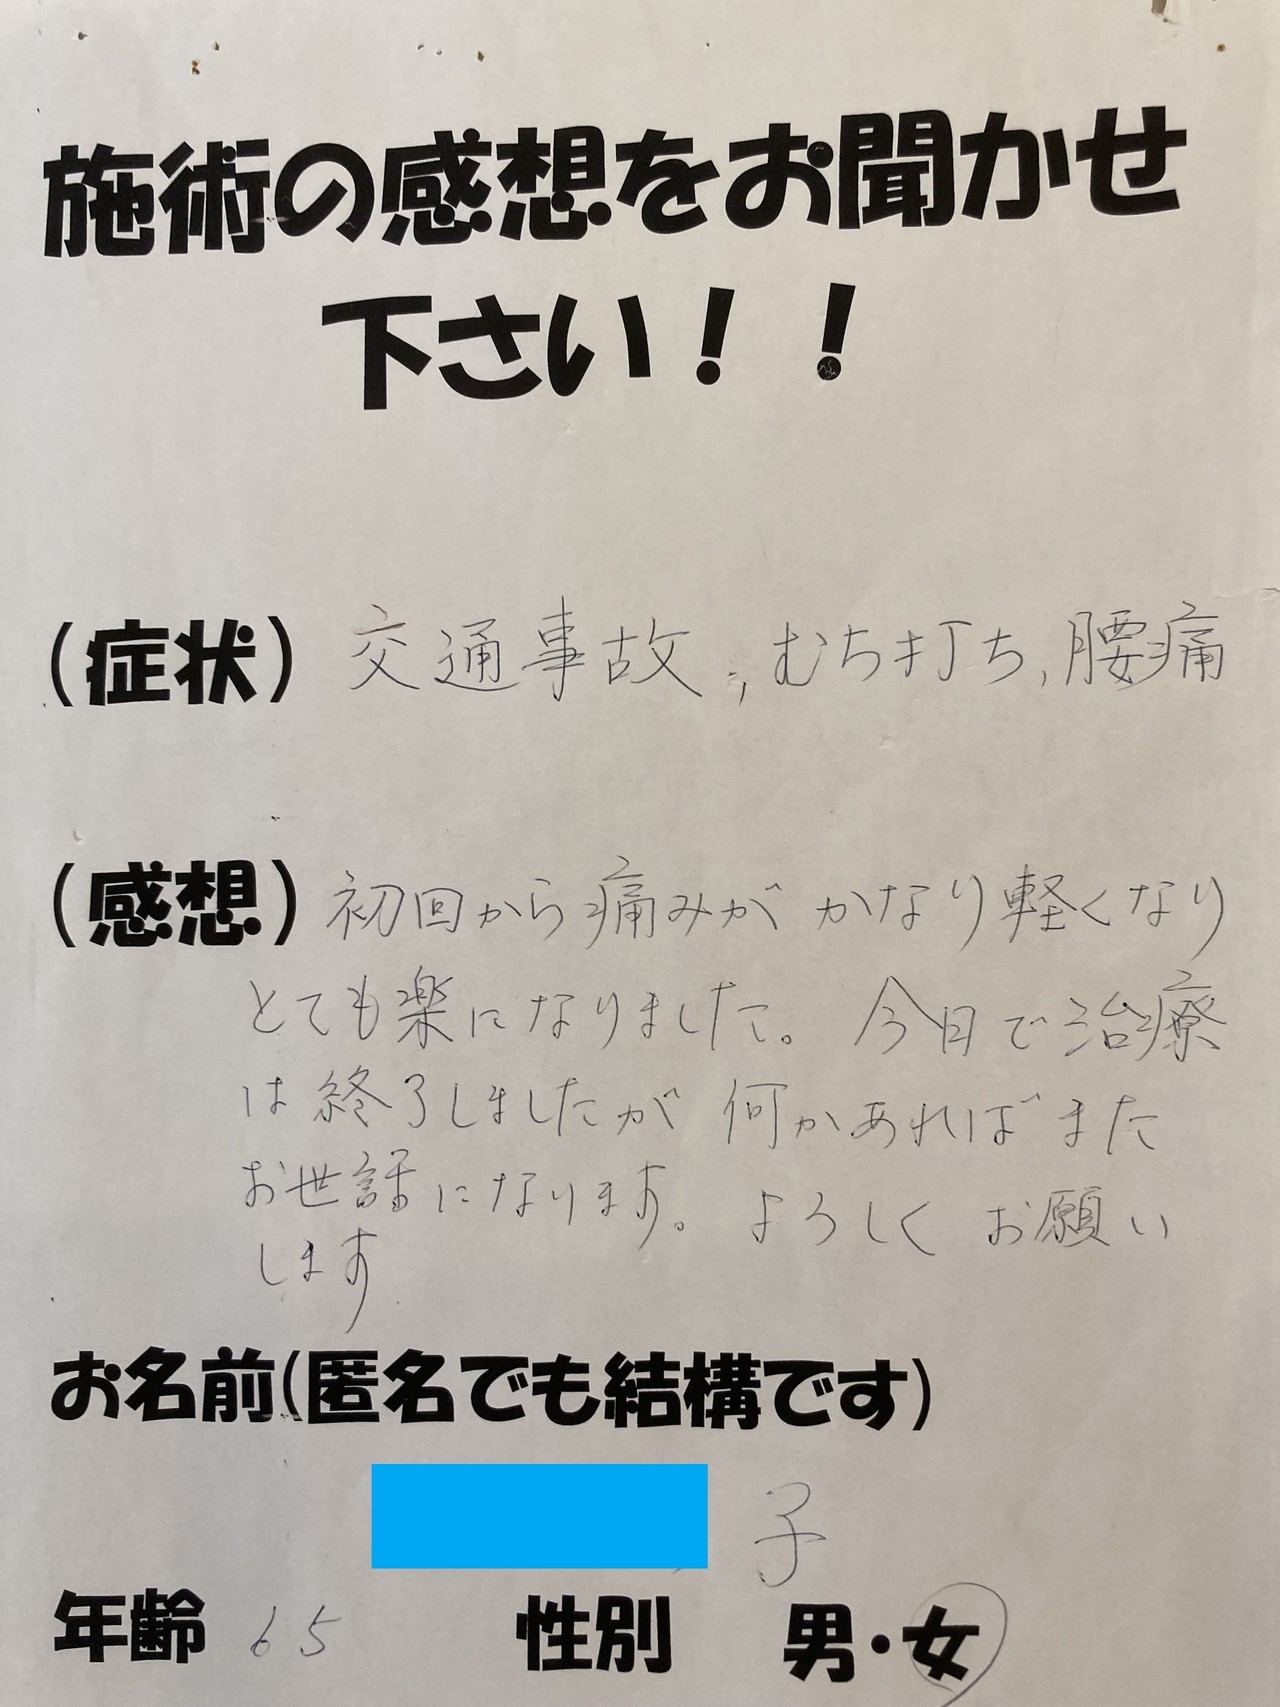 施術の感想をお聞かせ
下さい！！
(症状) 交通事故、むち打ち、腰痛
(感想) 初回から痛みがかなり軽くなり
とても楽になりました。 今日で治療
は終了しましたが 何かあればまた
お世話になります。 よろしく お願い
します
お名前(匿名でも結構です)
子
年齢 65 性別 男・女